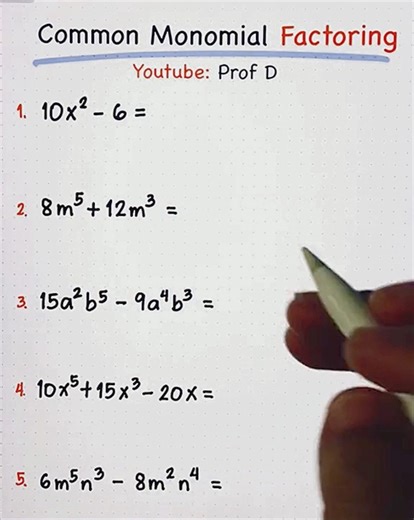 Common Monomial Factoring
Youtube: Prof D
1. 10x² - 6 =
2. 8m⁵ + 12m³ =
3. 15a²b⁵ - 9a⁴b³ =
4. 10x⁵ + 15x³ - 20x =
5. 6m⁵n³ - 8m²n⁴ =